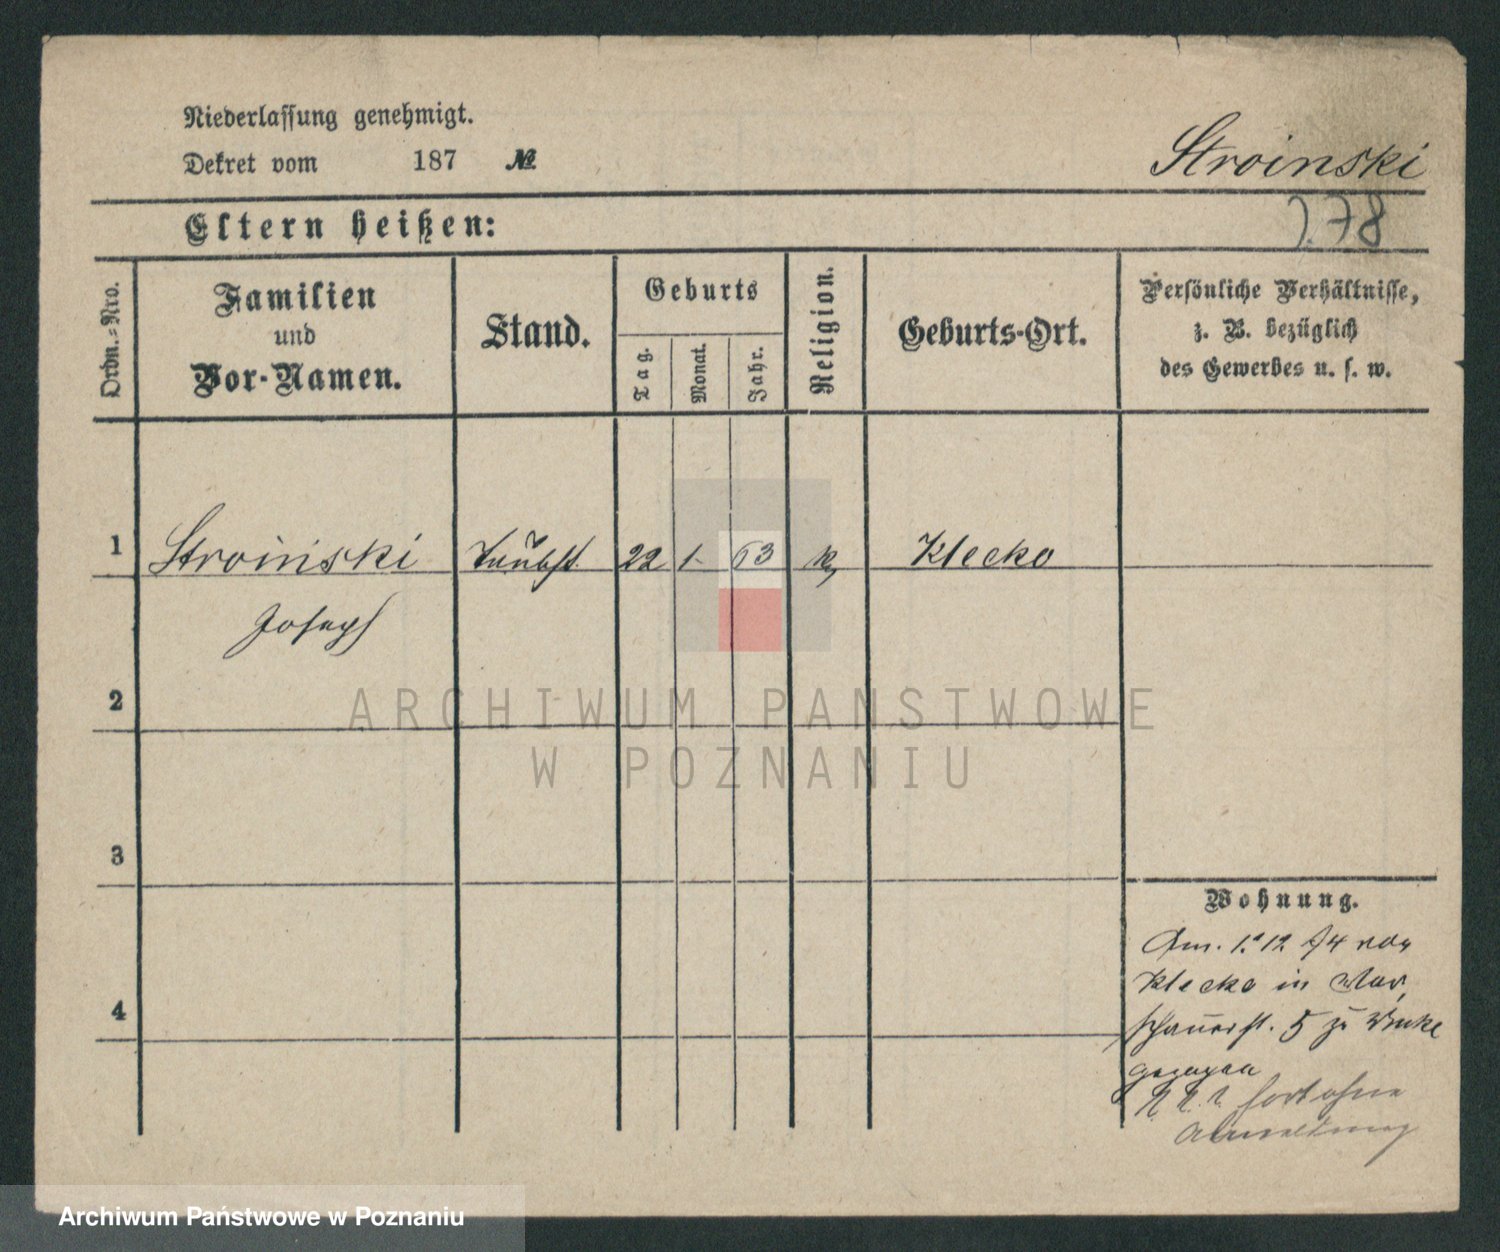 Niederlassung genehmigt.
Dekret vom 187 №
Stroinski
Eltern heißen:
78
Ordn.-Nro.
Familien
und
Vor-Namen.
Stand.
Geburts
Tag.
Monat.
Jahr.
Religion.
Geburts-Ort.
Persönliche Verhältnisse,
z. B. bezüglich
des Gewerbes u. s. w.
1 Stroiński Taubst. 22 1. 63 k Klecko
Joseph
2
ARCHIWUM PAŃSTWOWE
W POZNANIU
3
Wohnung.
Am. 1. 12 74 von
Klecko in War
schauerst. 5 zu
gezogen
fort ohne
Abmeldung
4
Archiwum Państwowe w Poznaniu